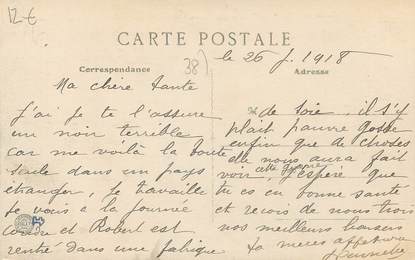 12€
CARTE POSTALE
Correspondance
38)
Adresse
le 26 j. 1918
Ma chère tante
j'ai je te l'assure
un noir terrible
car me voilà la toute
seule dans un pays
étranger, je travaille
je vais à la journée
coudre et Robert est
rentré dans une fabrique
de soie, il s'y
plait pauvre gosse
enfin que de choses
elle nous aura fait
voir cette guerre espère que
tu es en bonne santé
et recois de nous trois
nos meilleurs baisers
ta niece affect